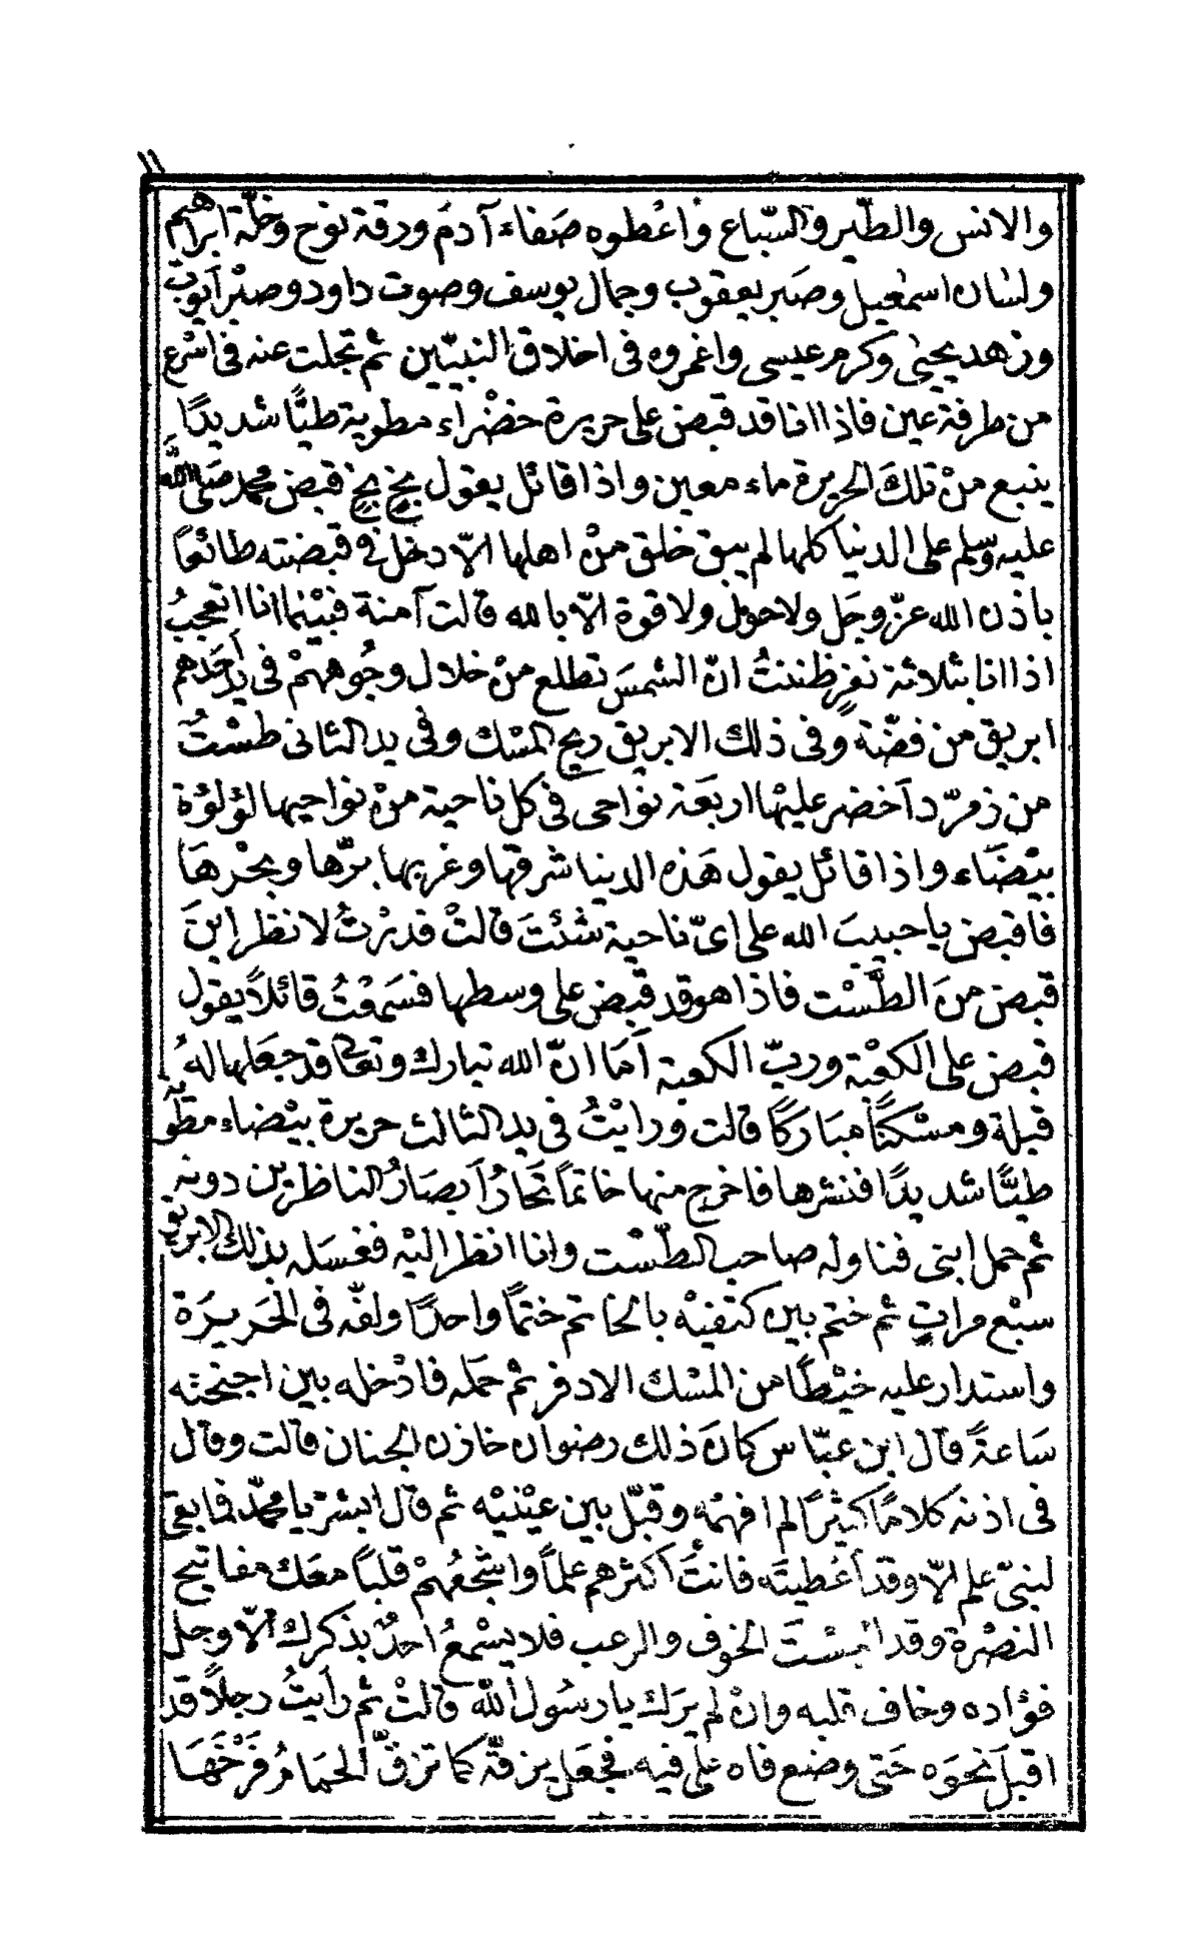 ١١
والانس والطّير والسّباع واعْطوه صَفاء آدمَ ورقة نوح وخلّة ابراهيم
ولسان اسمٰعيل وصَبر يعقوب وجمال يوسف وصوت داود وصبْر اَيّوب
وزهد يحيٰى وكرم عيسى واغمروه فى اخلاق النبيّين ثم تجلت عنه فى اسْرع
من طرفة عين فاذا انا قد قبض على حريرة خضْراء مطوية طيًّا شديدًا
ينبع منْ تلكَ الحريرة ماء معين واذا قائل يقول بخٍ بخٍ قبض محمد صَلى الله
عليه وسلم على الدنيا كلها لم يبق خلق منْ اهلها الّا دخل فى قبضته طائعًا
باذن الله عزّ وجَل ولا حول ولا قوة الّا بالله قالت آمنة فبيْنما انا اتعجبُ
اذا انا بثلاثة نفرٍ ظننتُ انّ الشمسَ تطلع منْ خلال وجُوههمْ فى يد اَحَدهم
ابريق من فضّة وفى ذلك الابريق ريح المسْك وفى يد الثانى طسْتٌ
من زمرّد اَخضر عليْها اربَعَة نواحى فى كل ناحية منْ نواحيها لؤلؤة
بيْضَاء واذا قائل يقول هَذه الدينا شرقها وغربها برّها وبحْرهَا
فاقبض يا حبيبَ الله على اىّ ناحية شئْتَ قالتْ فدرْتُ لانظر اينَ
قبض منَ الطّسْت فاذا هو قد قبض على وسطها فسَمعْتُ قائلًا يقول
قبض على الكعْبة وربّ الكعبة اَمَا انّ الله تبارك وتعالى قد جعَلها لهُ
قبلة ومسْكنًا مبَاركًا قالت ورايْتُ فى يد الثالث حريرة بيْضاء مطويّة
طيًّا شديدًا فنشرها فاخرج منها خاتمًا تَحَارُ اَبصَارُ الناظرين دونه
ثم حمل ابنى فناوله صاحب الطّسْت وانا انظر اليْه فغسَله بذلك الابريق
سبْع مراتٍ ثم ختم بين كتفيْه بالخاتم ختمًا واحدًا ولفّه فى الحَريرَة
واستدار عليه خيْطًا من المسْك الادفر ثم حَمله فادْخله بين اجنحته
سَاعةً قال ابن عبّاس كانَ ذلك رضوان خازن الجنان قالت وقال
فى اذنه كلامًا كثيْرًا لم افهمْه وقبّل بين عيْنيْه ثم قال ابشرْ يا محمّد فما بقى
لنبىّ علم الّا وقد اُعْطيتَه فانتْ اكثرهم علمًا واشْجعُهمْ قلبًا معَك مفاتيح
النصْرة وقد البسْتَ الخوف والرعب فلا يسْمعُ احدٌ بذكرك الّا وجل
فؤاده وخاف قلبه وانْ لم يرَك يا رسُول الله قالتْ ثم راَيتُ رجلًا قد
اقبلَ نحوَه حَتى وضع فاه على فيه فجعَل يزقّهٌ كما تزقّ الحمَامُ فَرْخَهَا